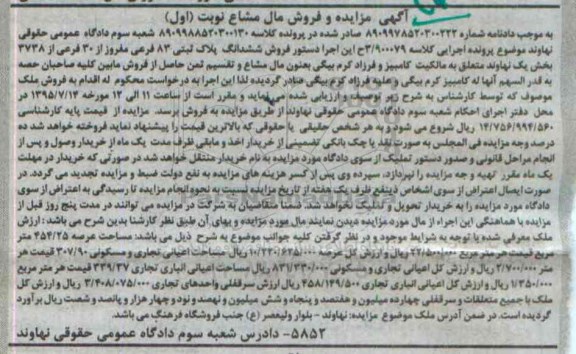 آگهی مزایده و فروش مال مشاع نوبت (اول)
به موجب دادنامه شماره ۸۹۰۹۹۷۸۵۲۰۳۰۰۲۲۲ صادر شده در پرونده کلاسه ۸۹۰۹۹۸۸۵۲۰۳۰۰۱۳۰ شعبه سوم دادگاه عمومی حقوقی
نهاوند موضوع پرونده اجرایی کلاسه ۳/۹۰۰۰۷۹ح این اجرا دستور فروش ششدانگ پلاک ثبتی ۸۳ فرعی مفروز از ۳۰ فرعی از ۳۷۳۸
بخش یک نهاوند متعلق به مالکیت کامبیز و فرزاد کرم بیگی بعنوان مال مشاع و تقسیم ثمن حاصل از فروش مابین کلیه صاحبان حصه
به قدر السهم آنها له کامبیز کرم بیگی علیه فرزاد کرم بیگی صادر گردیده لذا این اجرا به درخواست محکوم له اقدام به فروش ملک
موصوف که توسط کارشناس به شرح زیر توصیف و ارزیابی شده می نماید و مقرر است از ساعت ۱۱ الی ۱۲ مورخه ۱۳۹۵/۷/۱۴ در
محل دفتر اجرای احکام شعبه سوم دادگاه عمومی حقوقی نهاوند از طریق مزایده به فروش برسد. مزایده از قیمت پایه کارشناسی
۱۴/۷۵۶/۹۹۴/۵۶۰ ریال شروع می شود و به هر شخص حقیقی یا حقوقی که بالاترین قیمت را پیشنهاد نماید فروخته خواهد شد ده
درصد وجه مزایده فی المجلس به صورت نقد یا چک بانکی تضمینی از خریدار اخذ و مابقی ظرف مدت یک ماه از خریدار وصول و پس از
انجام مراحل قانونی و صدور دستور تملیک از سوی دادگاه مورد مزایده به نام خریدار منتقل خواهد شد در صورتی که خریدار در مهلت
یک ماه مقرر تهیه وجه مزایده را نپردازد، سپرده وی پس از کسر هزینه های مزایده به نفع دولت ضبط و مزایده تجدید می گردد. در
صورت ایصال اعتراض از سوی اشخاص ذینفع ظرف یک هفته از تاریخ مزایده نسبت به نحوه انجام مزایده تا رسیدگی به اعتراض از سوی
دادگاه مورد مزایده را به خریدار تحویل و تملیک نخواهد شد ضمنا متقاضیان به شرکت در مزایده می توانند در مدت پنج روز قبل از
مزایده با هماهنگی این اجراء از مال مورد مزایده دیدن نمایند مال مورد مزایده و بهای آن طبق نظر کارشنا بدین شرح می باشد: ارزش
ملک معرفی شده با توجه به شرایط موجود و در نظر گرفتن کلیه جوانب موضوع به شرح ذیل می باشد: مساحت عرصه ۴۵۴/۲۵ متر
مربع قیمت هر متر مربع ۲۲/۵۰۰/۰۰۰ ریال و ارزش کل عرصه ۱۰/۲۲۰/۶۲۵/۰۰۰ ریال مساحت اعیانی تجاری و مسکونی ۳۰۷/۹۰ قیمت هر
متر ۲/۷۰۰/۰۰۰ ریال و ارزش کل اعیانی تجاری و مسکونی ۸۳۱/۳۳۰/۰۰۰ ریال مساحت اعیانی انباری تجاری ۳۳۹/۳۷ قیمت هر متر مربع
۱/۳۵۰/۰۰۰ ریال و ارزش کل اعیانی انباری تجاری ۴۵۸/۱۴۹/۵۰۰ ریال ارزش سرقفلی واحدهای تجاری ۳/۴۰۸/۰۷۵/۰۰۰ ریال و ارزش کل
ملک با جمیع متعلقات و سرقفلی چهارده میلیون و هفتصد و پنجاه و شش میلیون و نهصد و نود و چهار هزار و پانصد و شصت ریال برآورد
گردیده است. در ضمن آدرس ملک موضوع مزایده: نهاوند - بلوار ولیعصر (ع) جنب فروشگاه فرهنگ می باشد.
۵۸۵۲- دادرس شعبه سوم دادگاه عمومی حقوقی نهاوند